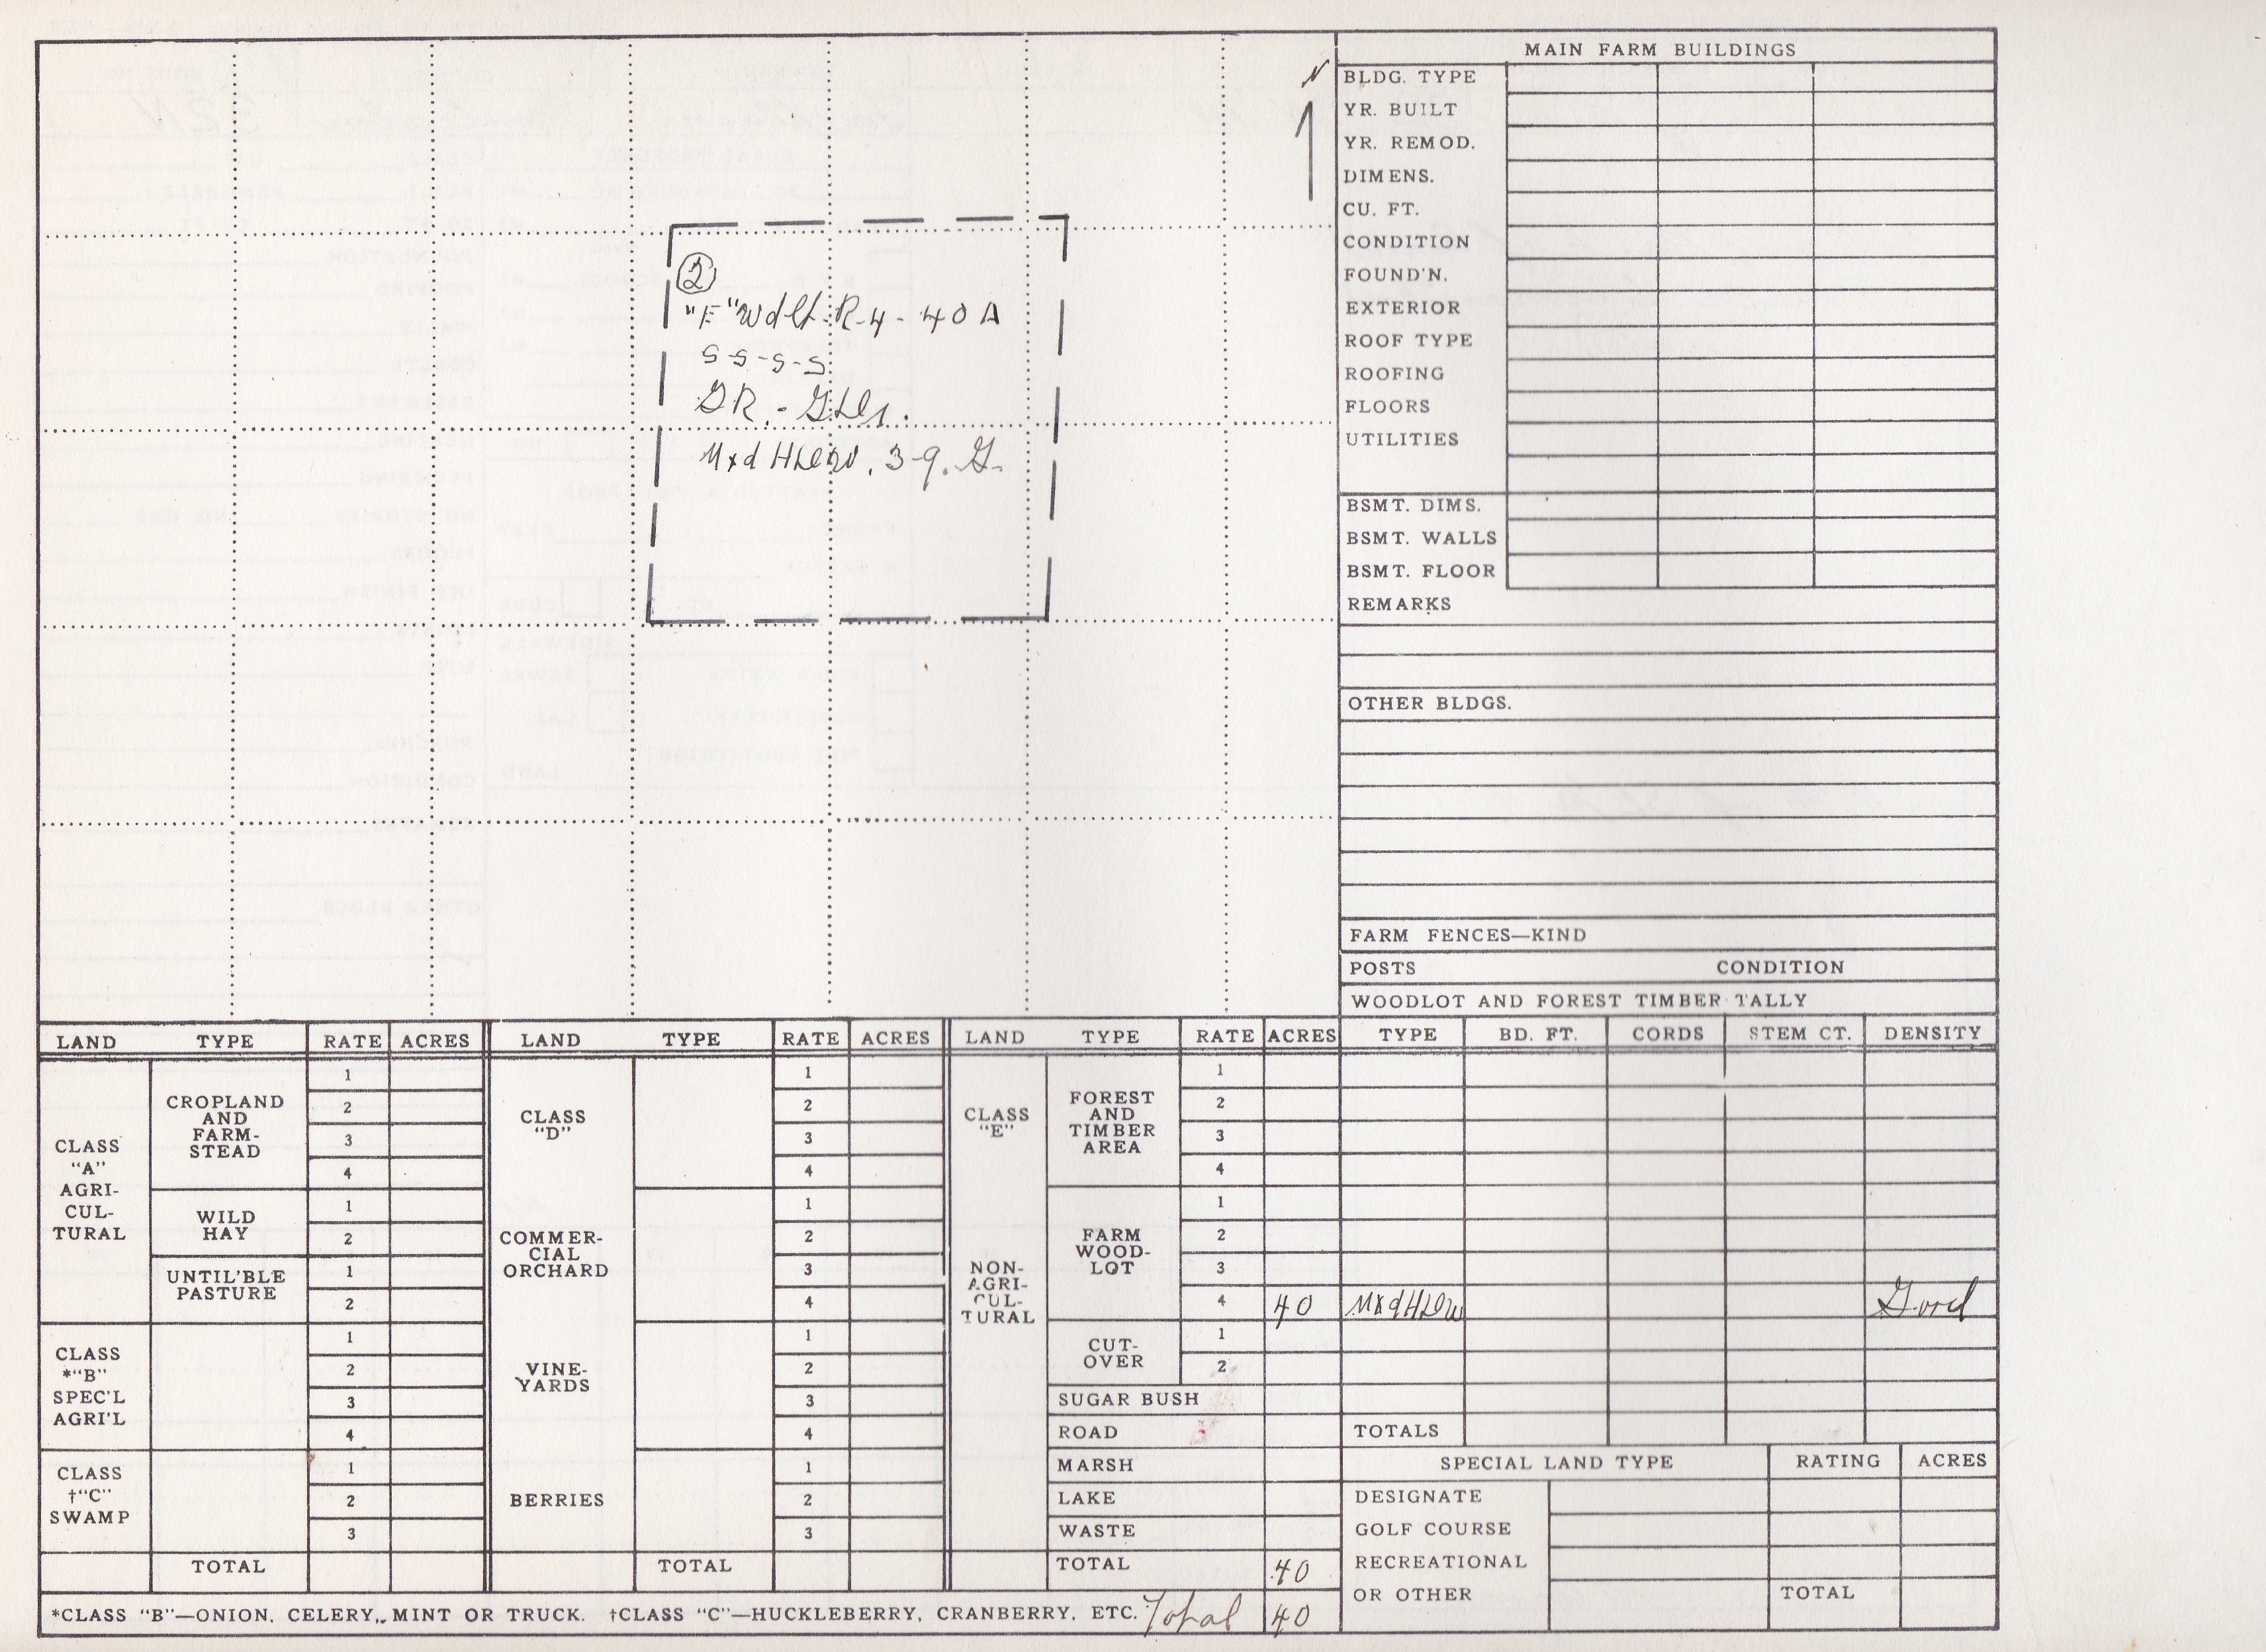 MAIN FARM BUILDINGS
N
BLDG. TYPE
YR. BUILT
YR. REMOD.
DIMENS.
CU. FT.
CONDITION
FOUND'N.
EXTERIOR
ROOF TYPE
ROOFING
FLOORS
UTILITIES
BSMT. DIMS.
BSMT. WALLS
BSMT. FLOOR
REMARKS
OTHER BLDGS.
FARM FENCES—KIND
POSTS CONDITION
WOODLOT AND FOREST TIMBER TALLY
2
R-4-40 A
S-S-S-S
Mxd HDW. 3-9. G-
LAND TYPE RATE ACRES LAND TYPE RATE ACRES LAND TYPE RATE ACRES TYPE BD. FT. CORDS STEM CT. DENSITY
CLASS
"A"
AGRI-
CUL-
TURAL
CROPLAND
AND
FARM-
STEAD
1
2
3
4
WILD
HAY
1
2
UNTIL'BLE
PASTURE
1
2
CLASS
*"B"
SPEC'L
AGRI'L
1
2
3
4
CLASS
†"C"
SWAMP
1
2
3
TOTAL
CLASS
"D"
1
2
3
4
COMMER-
CIAL
ORCHARD
1
2
3
4
VINE-
YARDS
1
2
3
4
BERRIES
1
2
3
TOTAL
CLASS
"E"
NON-
AGRI-
CUL-
TURAL
FOREST
AND
TIMBER
AREA
1
2
3
4
FARM
WOOD-
LOT
1
2
3
4 40 MxdHDW Good
CUT-
OVER
1
2
SUGAR BUSH
ROAD
MARSH
LAKE
WASTE
TOTAL 40
TOTALS
SPECIAL LAND TYPE RATING ACRES
DESIGNATE
GOLF COURSE
RECREATIONAL
OR OTHER TOTAL
*CLASS "B"—ONION, CELERY, MINT OR TRUCK. †CLASS "C"—HUCKLEBERRY, CRANBERRY, ETC. Total 40